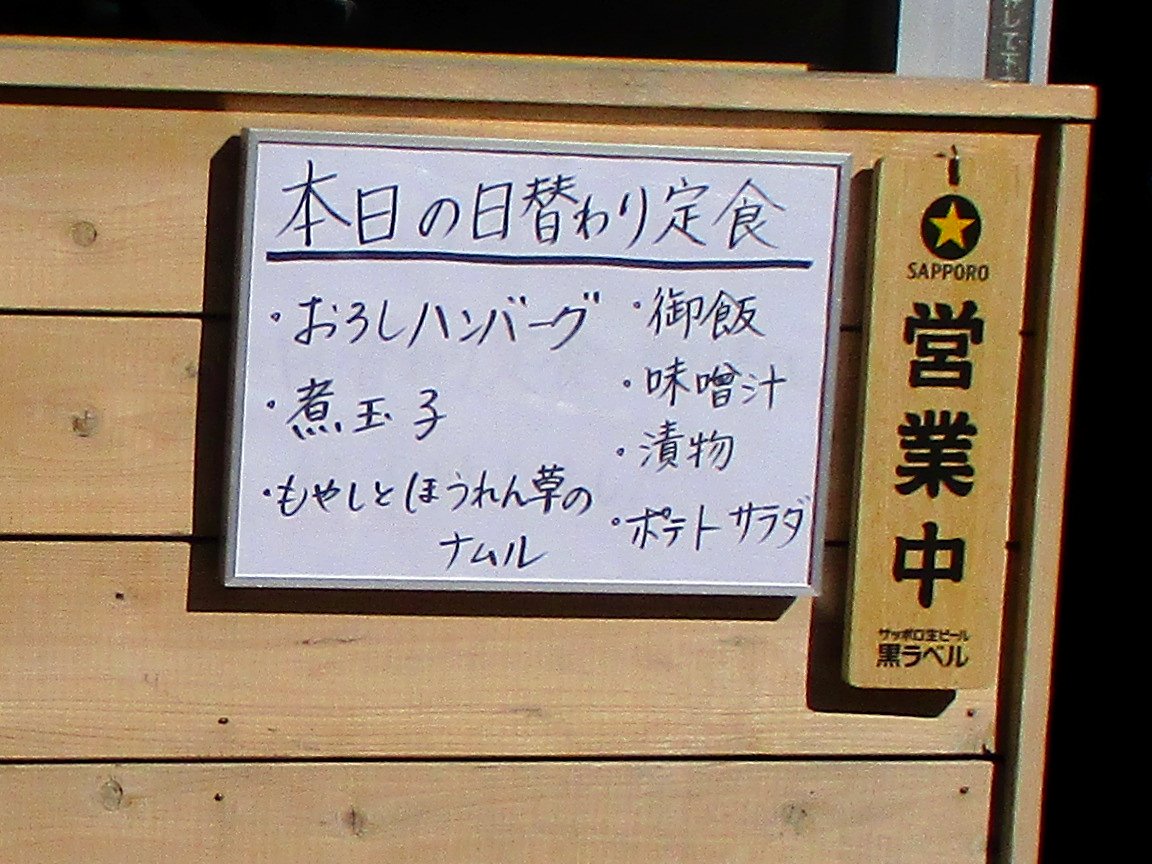 本日の日替わり定食
・おろしハンバーグ
・煮玉子
・もやしとほうれん草の
ナムル
・御飯
・味噌汁
・漬物
・ポテトサラダ
SAPPORO
営業中
サッポロ生ビール
黒ラベル